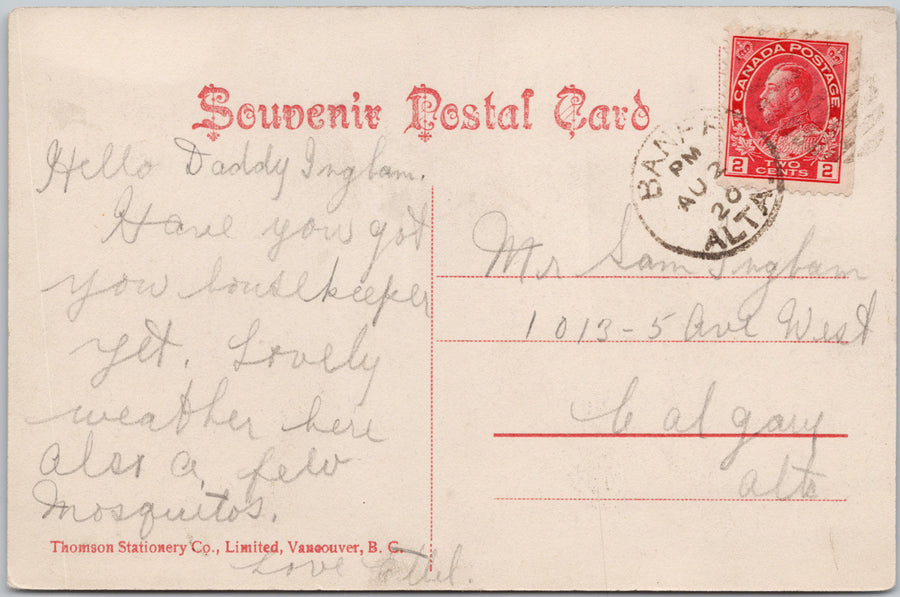 Souvenir Postal Card
CANADA POSTAGE
2 TWO CENTS 2
BANFF
PM
AU 2
20
ALTA
Hello Daddy Ingham.
Have you got
you housekeeper
yet. Lovely
weather here
also a few
Mosquitos.
Love Ethel.
Mr Sam Ingham
1013-5 Ave West
Calgary
Alta
Thomson Stationery Co., Limited, Vancouver, B. C.